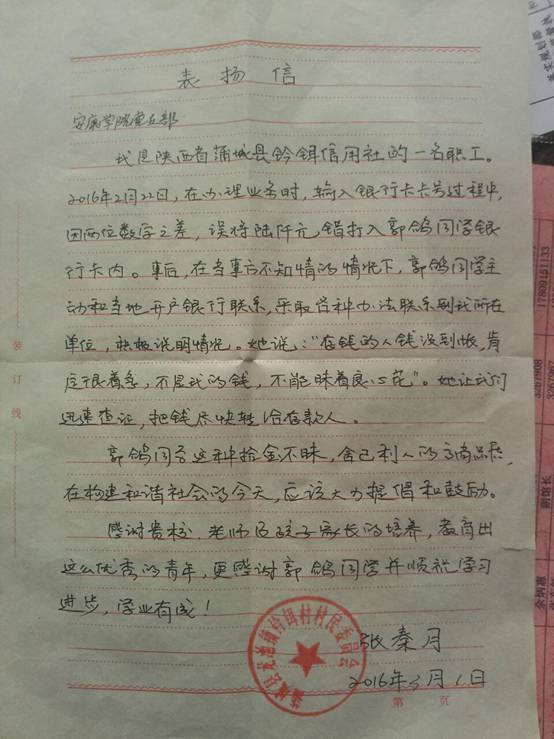 表扬信
安康学院重点部
我是陕西省蒲城县钤铒信用社的一名职工。
2016年2月22日,在办理业务时,输入银行卡卡号过程中,
因两位数字之差,误将陆仟元错打入郭鸽同学银
行卡内。事后,在当事方不知情的情况下,郭鸽同学主
动和当地开户银行联系,采取各种办法联系到我所在
单位,积极说明情况。她说:"存钱的人钱没到账,肯
定很着急,不是我的钱,不能昧着良心花"。她让我们
迅速查证,把钱尽快转给存款人。
郭鸽同学这种拾金不昧,舍己利人的高尚品德,
在构建和谐社会的今天,应该大力提倡和鼓励。
感谢贵校、老师及孩子家长的培养,教育出
这么优秀的青年,更感谢郭鸽同学并顺祝学习
进步,学业有成!
张秦月
2016年3月1日
蒲城县龙池镇钤铒村村民委员会
第 页
装订线
17809151133
3267908
3267967
副馆长